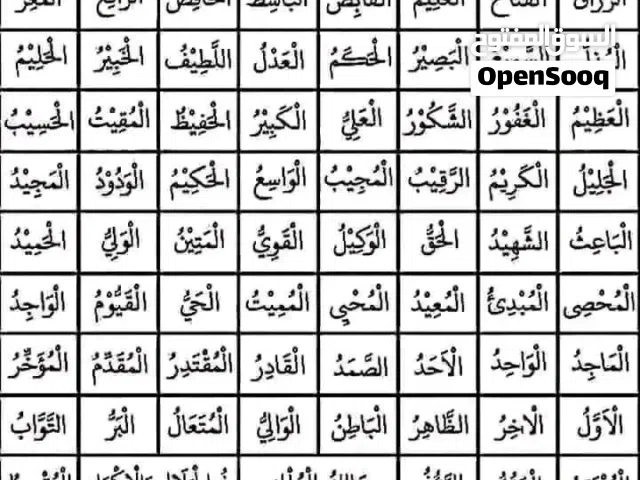 السوق المفتوح
OpenSooq
الْبَصِيْرُ الْحَكَمُ الْعَدْلُ اللَّطِيْفُ الْخَبِيْرُ الْحَلِيْمُ
الْعَظِيْمُ الْغَفُوْرُ الشَّكُوْرُ الْعَلِيُّ الْكَبِيْرُ الْحَفِيْظُ الْمُقِيْتُ الْحَسِيْبُ
الْجَلِيْلُ الْكَرِيْمُ الرَّقِيْبُ الْمُجِيْبُ الْوَاسِعُ الْحَكِيْمُ الْوَدُوْدُ الْمَجِيْدُ
الْبَاعِثُ الشَّهِيْدُ الْحَقُّ الْوَكِيْلُ الْقَوِيُّ الْمَتِيْنُ الْوَلِيُّ الْحَمِيْدُ
الْمُحْصِى الْمُبْدِئُ الْمُعِيْدُ الْمُحْيِى الْمُمِيْتُ الْحَيُّ الْقَيُّوْمُ الْوَاجِدُ
الْمَاجِدُ الْوَاحِدُ الْاَحَدُ الصَّمَدُ الْقَادِرُ الْمُقْتَدِرُ الْمُقَدِّمُ الْمُؤَخِّرُ
الْاَوَّلُ الْاٰخِرُ الظَّاهِرُ الْبَاطِنُ الْوَالِيُّ الْمُتَعَالُ الْبَرُّ التَّوَّابُ